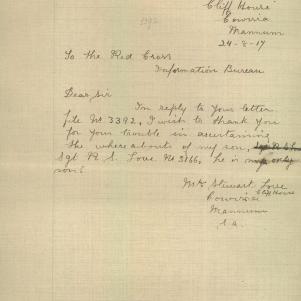 Cliff House
Cowirra
Mannum
24-8-17
3392
To the Red Cross
Information Bureau
Dear Sir
In reply to your letter
file No 3392, I wish to thank you
for your trouble in ascertaining
the whereabouts of my son,
Sgt R S. Lowe No 3166, he is my only
son.
Mrs Stewart Lowe
Cliff House
Cowirra
Mannum
S.A.